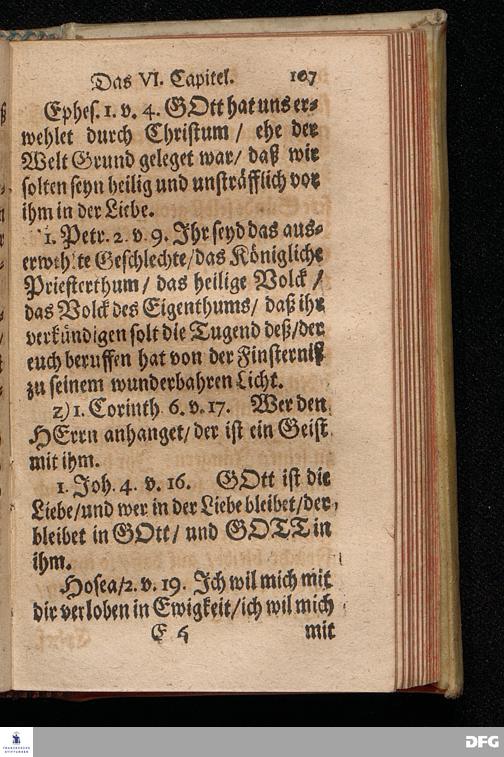 Das VI. Capitel. 107
Ephes. 1. v. 4. GOtt hat uns er-
wehlet durch Christum / ehe der
Welt Grund geleget war / daß wir
solten seyn heilig und unsträfflich vor
ihm in der Liebe.
1. Petr. 2. v. 9. Ihr seyd das aus-
erwehlte Geschlechte / das Königliche
Priesterthum / das heilige Volck /
das Volck des Eigenthums / daß ihr
verkündigen solt die Tugend deß / der
euch beruffen hat von der Finsterniß
zu seinem wunderbahren Licht.
2) 1. Corinth. 6. v. 17. Wer den
HErrn anhanget / der ist ein Geist
mit ihm.
1. Joh. 4. v. 16. GOtt ist die
Liebe / und wer in der Liebe bleibet / der
bleibet in GOtt / und GOTT in
ihm.
Hosea / 2. v. 19. Ich wil mich mit
dir verloben in Ewigkeit / ich wil mich
E 5 mit
FRANCKESCHE
STIFTUNGEN
DFG